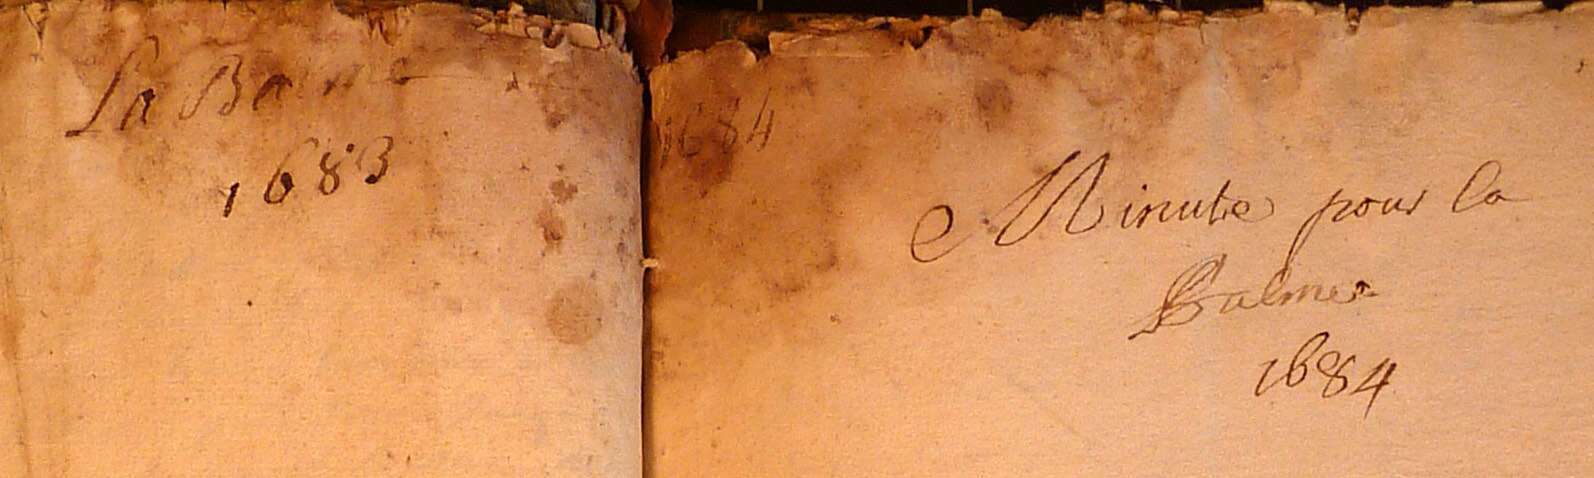 La Balme
1683
1684
Minute pour la
Balme
1684